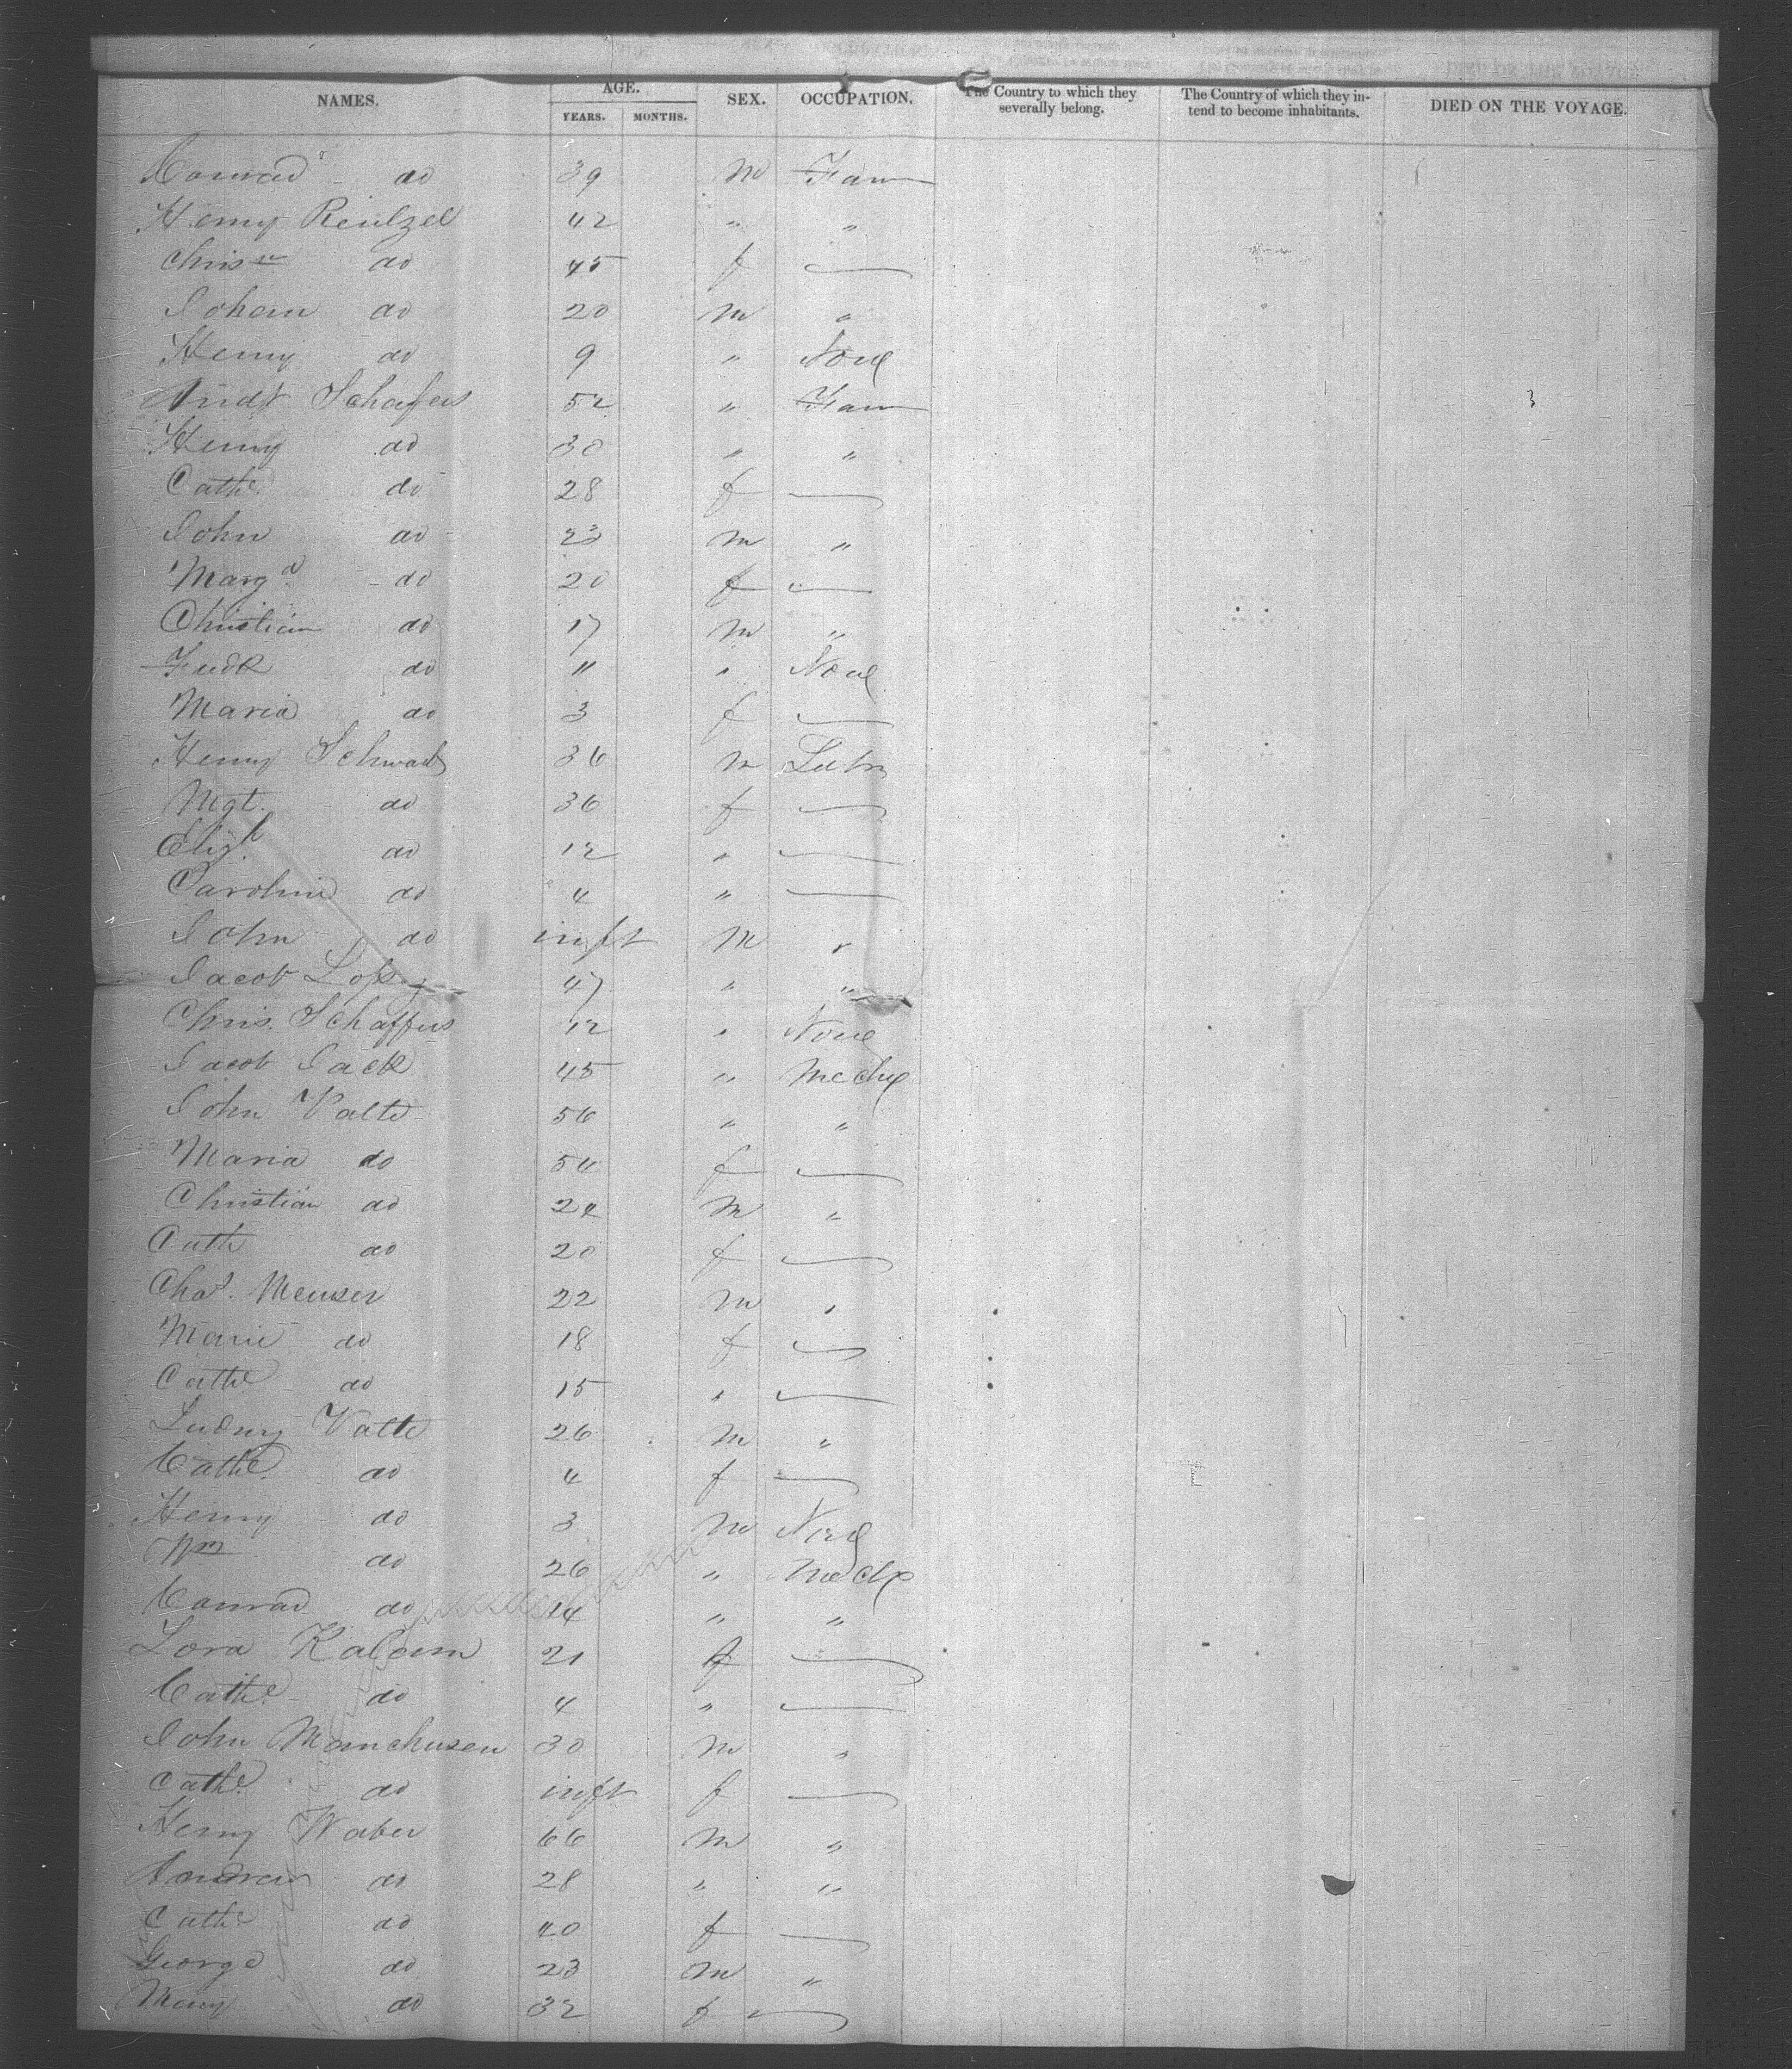 NAMES. AGE. SEX. OCCUPATION. The Country to which they severally belong. The Country of which they intend to become inhabitants. DIED ON THE VOYAGE.
YEARS. MONTHS.
Conrad do 39 m Farm
Henry Reulzel 42 " "
Chris do 45 f —
Joham do 20 m "
Henry do 9 " None
Schafers 52 " Farm
Henry do 30 " "
Cathe do 28 f —
John do 23 m "
Margd do 20 f —
Christian do 17 m "
Fredk do 11 " None
Maria do 3 f —
Henry Schwab 36 m
Mgt. do 36 f —
Elizh do 12 " —
Caroline do 4 " —
John do inft m "
Jacob 47 " "
Chris. Schaffers 12 " None
Jacob Jack 45 "
John Valte 56 " "
Maria do 54 f —
Christian do 24 m "
Cath do 20 f —
Chas. Meuser 22 m "
Marie do 18 f —
Cathe do 15 " —
Ludwig Valte 26 m "
Cathe do 4 f —
Henry do 3 m None
Wm do 26 "
Conrad do 14 " "
Lora 21 f —
Cathe do 4 " —
John Manchusen 30 m "
Cathe do inft f —
Henry Waber 66 m "
Andrew do 28 " "
Cathe do 40 f —
George do 23 m "
Mary do 32 f —